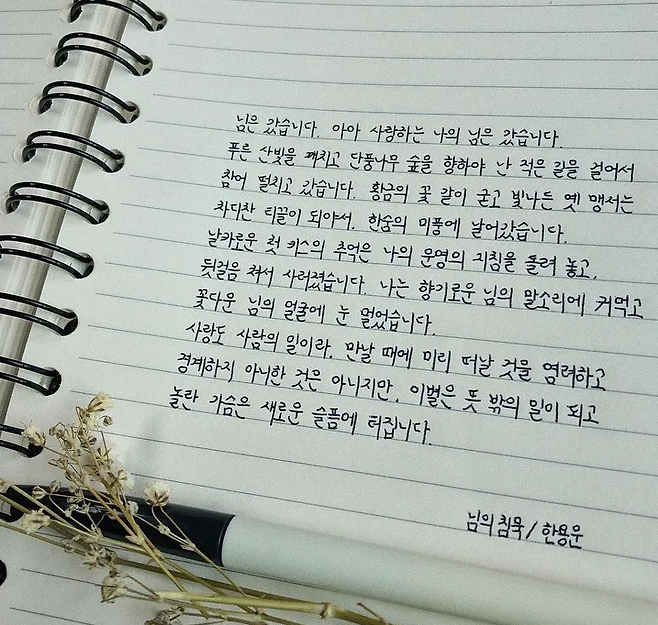 님은 갔습니다. 아아 사랑하는 나의 님은 갔습니다.
푸른 산빛을 깨치고 단풍나무 숲을 향하야 난 적은 길을 걸어서
참어 떨치고 갔습니다. 황금의 꽃 같이 굳고 빛나든 옛 맹서는
차디찬 티끌이 되야서. 한숨의 미풍에 날어갔습니다.
날카로운 첫 키스의 추억은 나의 운명의 지침을 돌려 놓고.
뒷걸음 쳐서 사러졌습니다. 나는 향기로운 님의 말소리에 귀먹고
꽃다운 님의 얼굴에 눈 멀었습니다.
사랑도 사람의 일이라. 만날 때에 미리 떠날 것을 염려하고
경계하지 아니한 것은 아니지만. 이별은 뜻 밖의 일이 되고
놀란 가슴은 새로운 슬픔에 터집니다.
님의 침묵 / 한용운